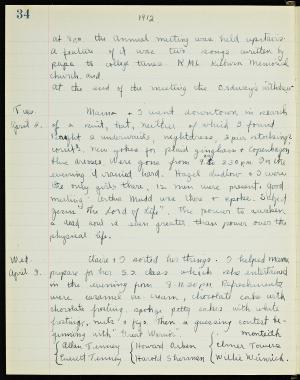 34
1912
at 8:00. the annual meeting was held upstairs.
A feature of it was two songs written by
papa to college tunes. R.M.L. Kilburn Memorial
church. and
At the end of the meeting the Ordways withdrew
Tues. Mama + I went downtown in search
April 2. of a suit, hat, neither of which I found
Bought 2 underwaists, nightdress, 3 pair stockings
corset. New yokes for plaid gingham + Copenhagen
blue dresses. Were gone from 9 to 2:30 p.m. In the
evening I carried "hard". Hazel Ludlow + I were
the only girls there, 12 men were present, good
meeting. Arthur Mudd was there + spoke. Subject
Jesus "The Lord of life". The power to awaken
a dead soul is even greater than power over the
physical life.
Wed. Claire + I sorted her things. I helped mama
April 3. prepare for her S.S. class which she entertained
in the evening from 8-11:30 P.M. Refreshments
were caramel ice-cream, chocolate cake with
chocolate frosting, sponge patty cakes with white
frosting, nuts + figs. Then a guessing contest be-
ginning with "Great Women". Monteith
Allen Tenney Howard Arken Elmer Towers
Everett Tenney Harold Sherman Willie Warrick.